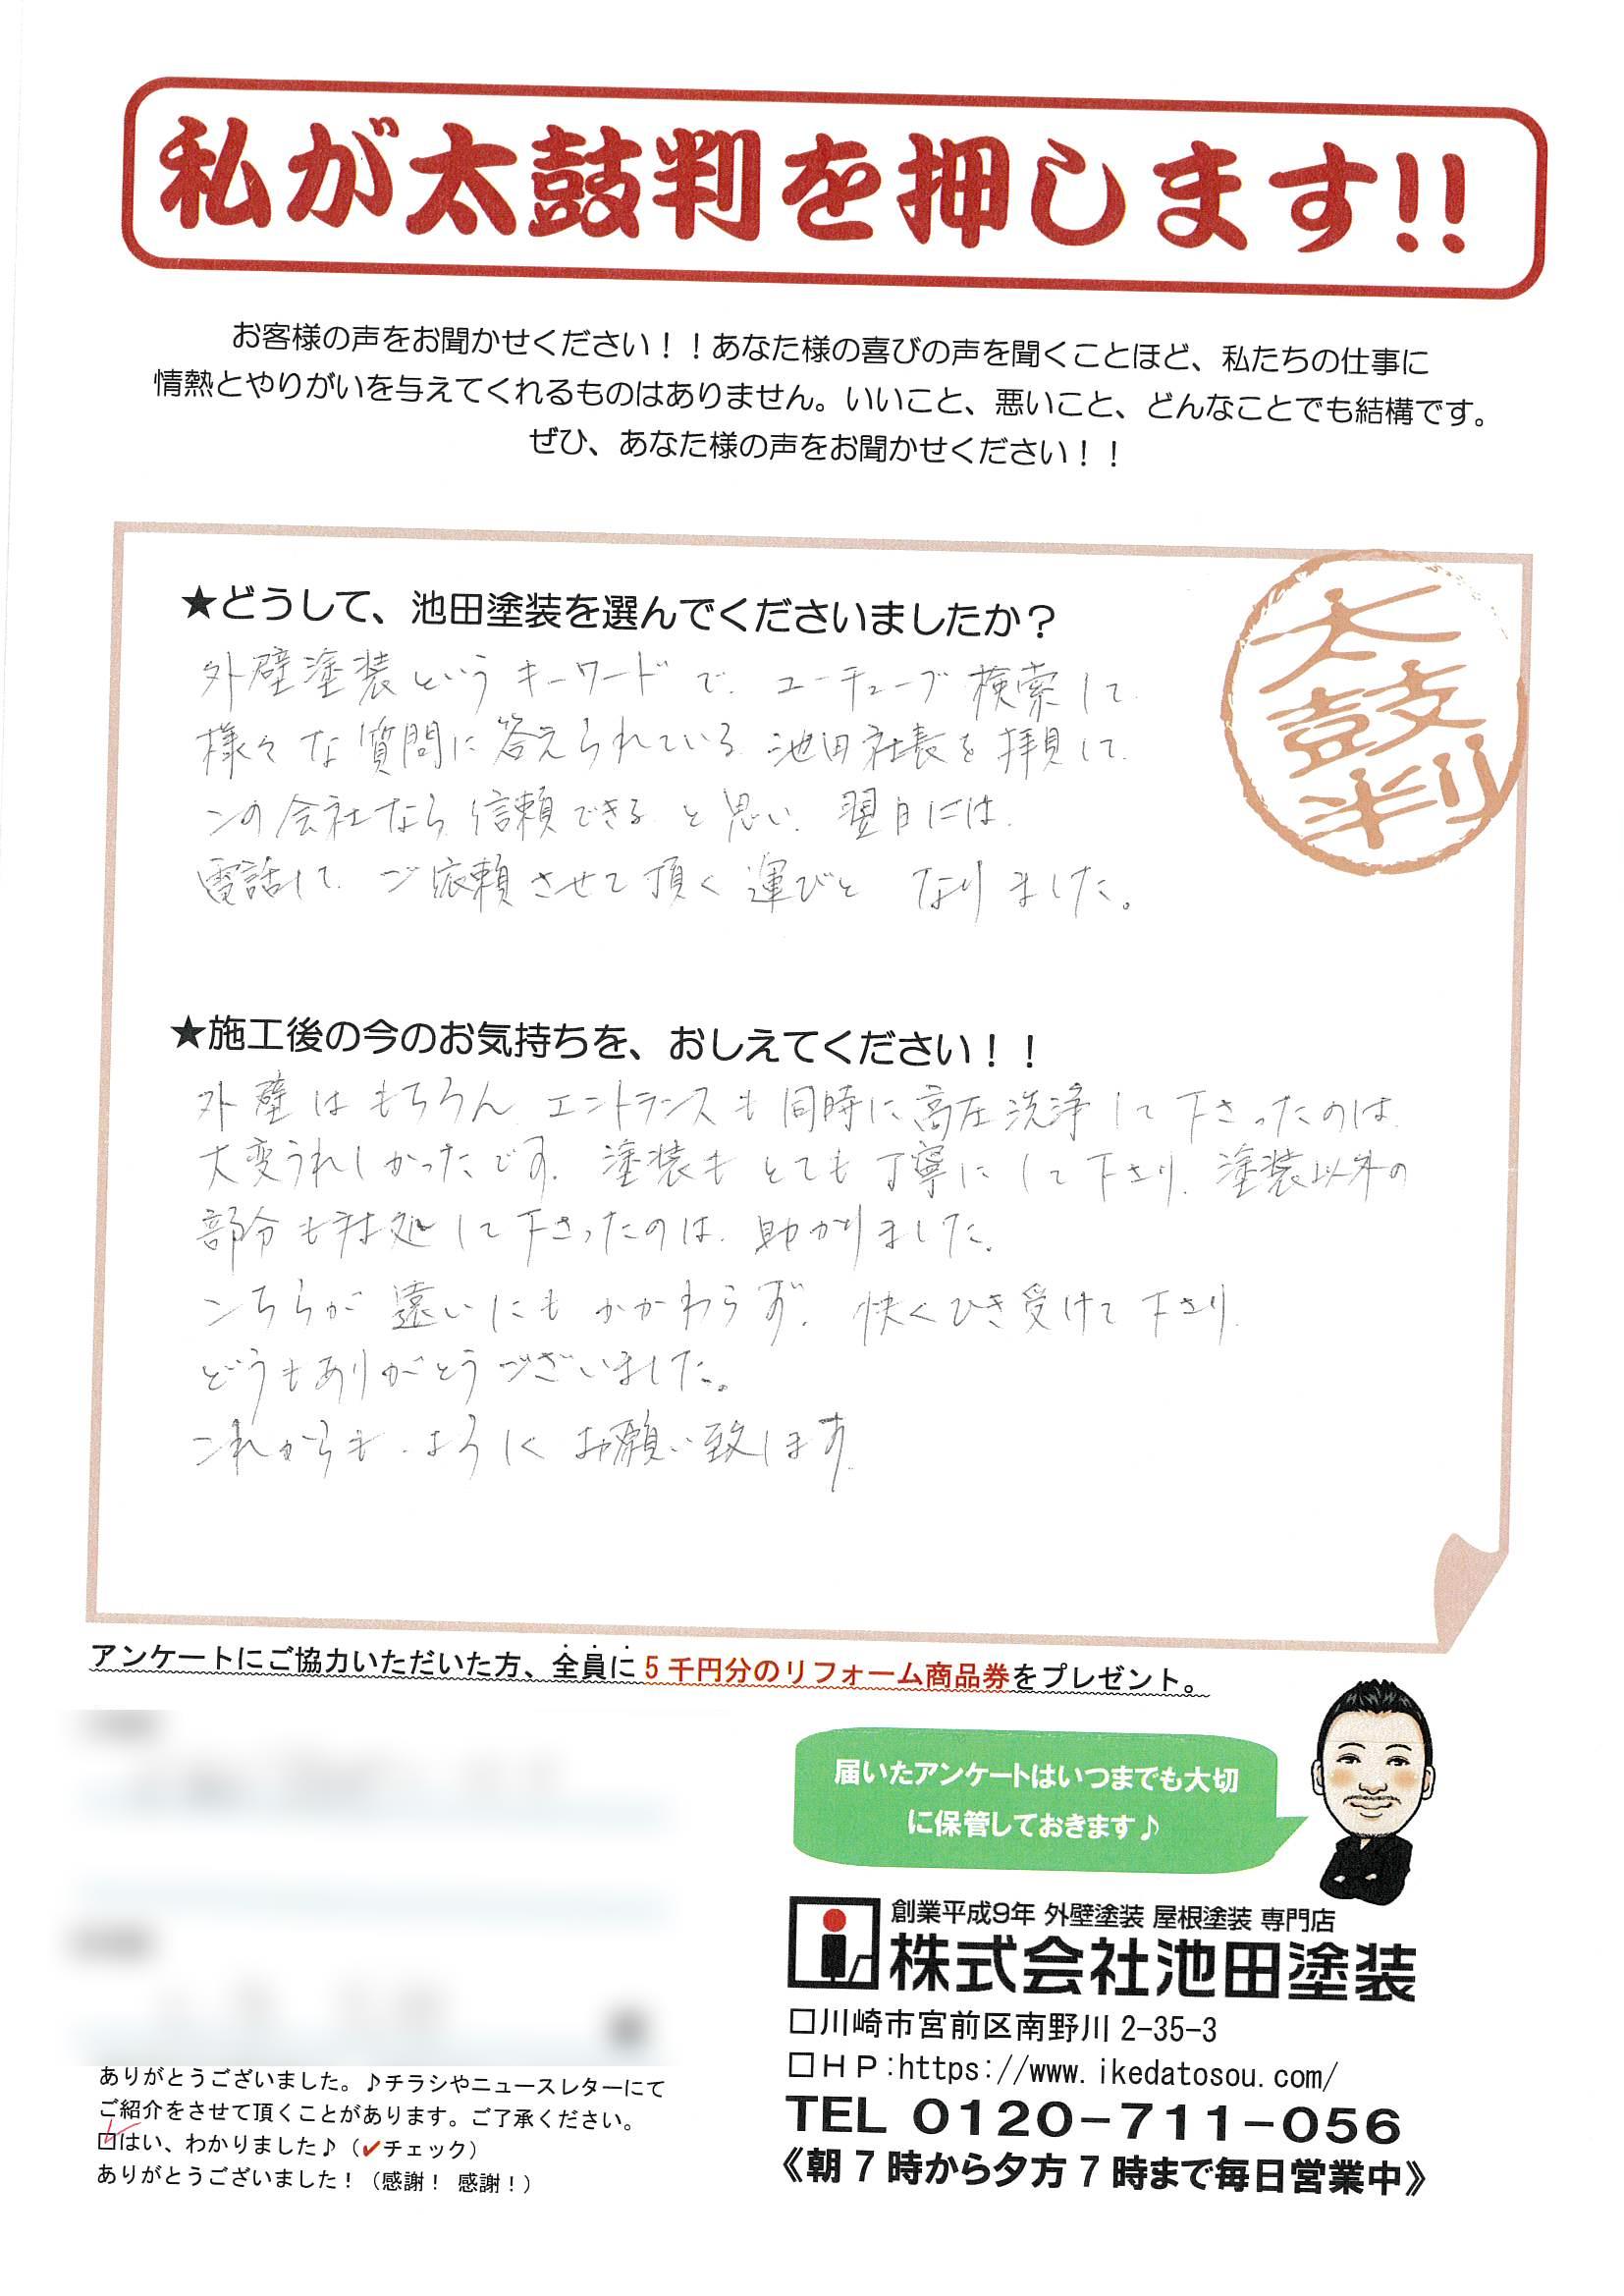 私が太鼓判を押します!!
お客様の声をお聞かせください！！あなた様の喜びの声を聞くことほど、私たちの仕事に
情熱とやりがいを与えてくれるものはありません。いいこと、悪いこと、どんなことでも結構です。
ぜひ、あなた様の声をお聞かせください！！
太鼓判
★どうして、池田塗装を選んでくださいましたか？
外壁塗装というキーワードで、ユーチューブ検索して
様々な質問に答えられている池田社長を拝見して
この会社なら信頼できると思い、翌日には、
電話して、ご依頼させて頂く運びとなりました。
★施工後の今のお気持ちを、おしえてください！！
外壁はもちろん、エントランスも同時に高圧洗浄して下さったのは
大変うれしかったです。塗装もとても丁寧にして下さり、塗装以外の
部分も対処して下さったのは、助かりました。
こちらが遠いにもかかわらず、快くひき受けて下さり、
どうもありがとうございました。
これからも、よろしくお願い致します。
アンケートにご協力いただいた方、全員に5千円分のリフォーム商品券をプレゼント。
届いたアンケートはいつまでも大切
に保管しておきます♪
創業平成9年 外壁塗装 屋根塗装 専門店
株式会社池田塗装
□川崎市宮前区南野川2-35-3
□ＨＰ:https://www.ikedatosou.com/
TEL 0120-711-056
《朝7時から夕方7時まで毎日営業中》
ありがとうございました。♪チラシやニュースレターにて
ご紹介をさせて頂くことがあります。ご了承ください。
□はい、わかりました♪（✔チェック）
ありがとうございました！（感謝！ 感謝！）